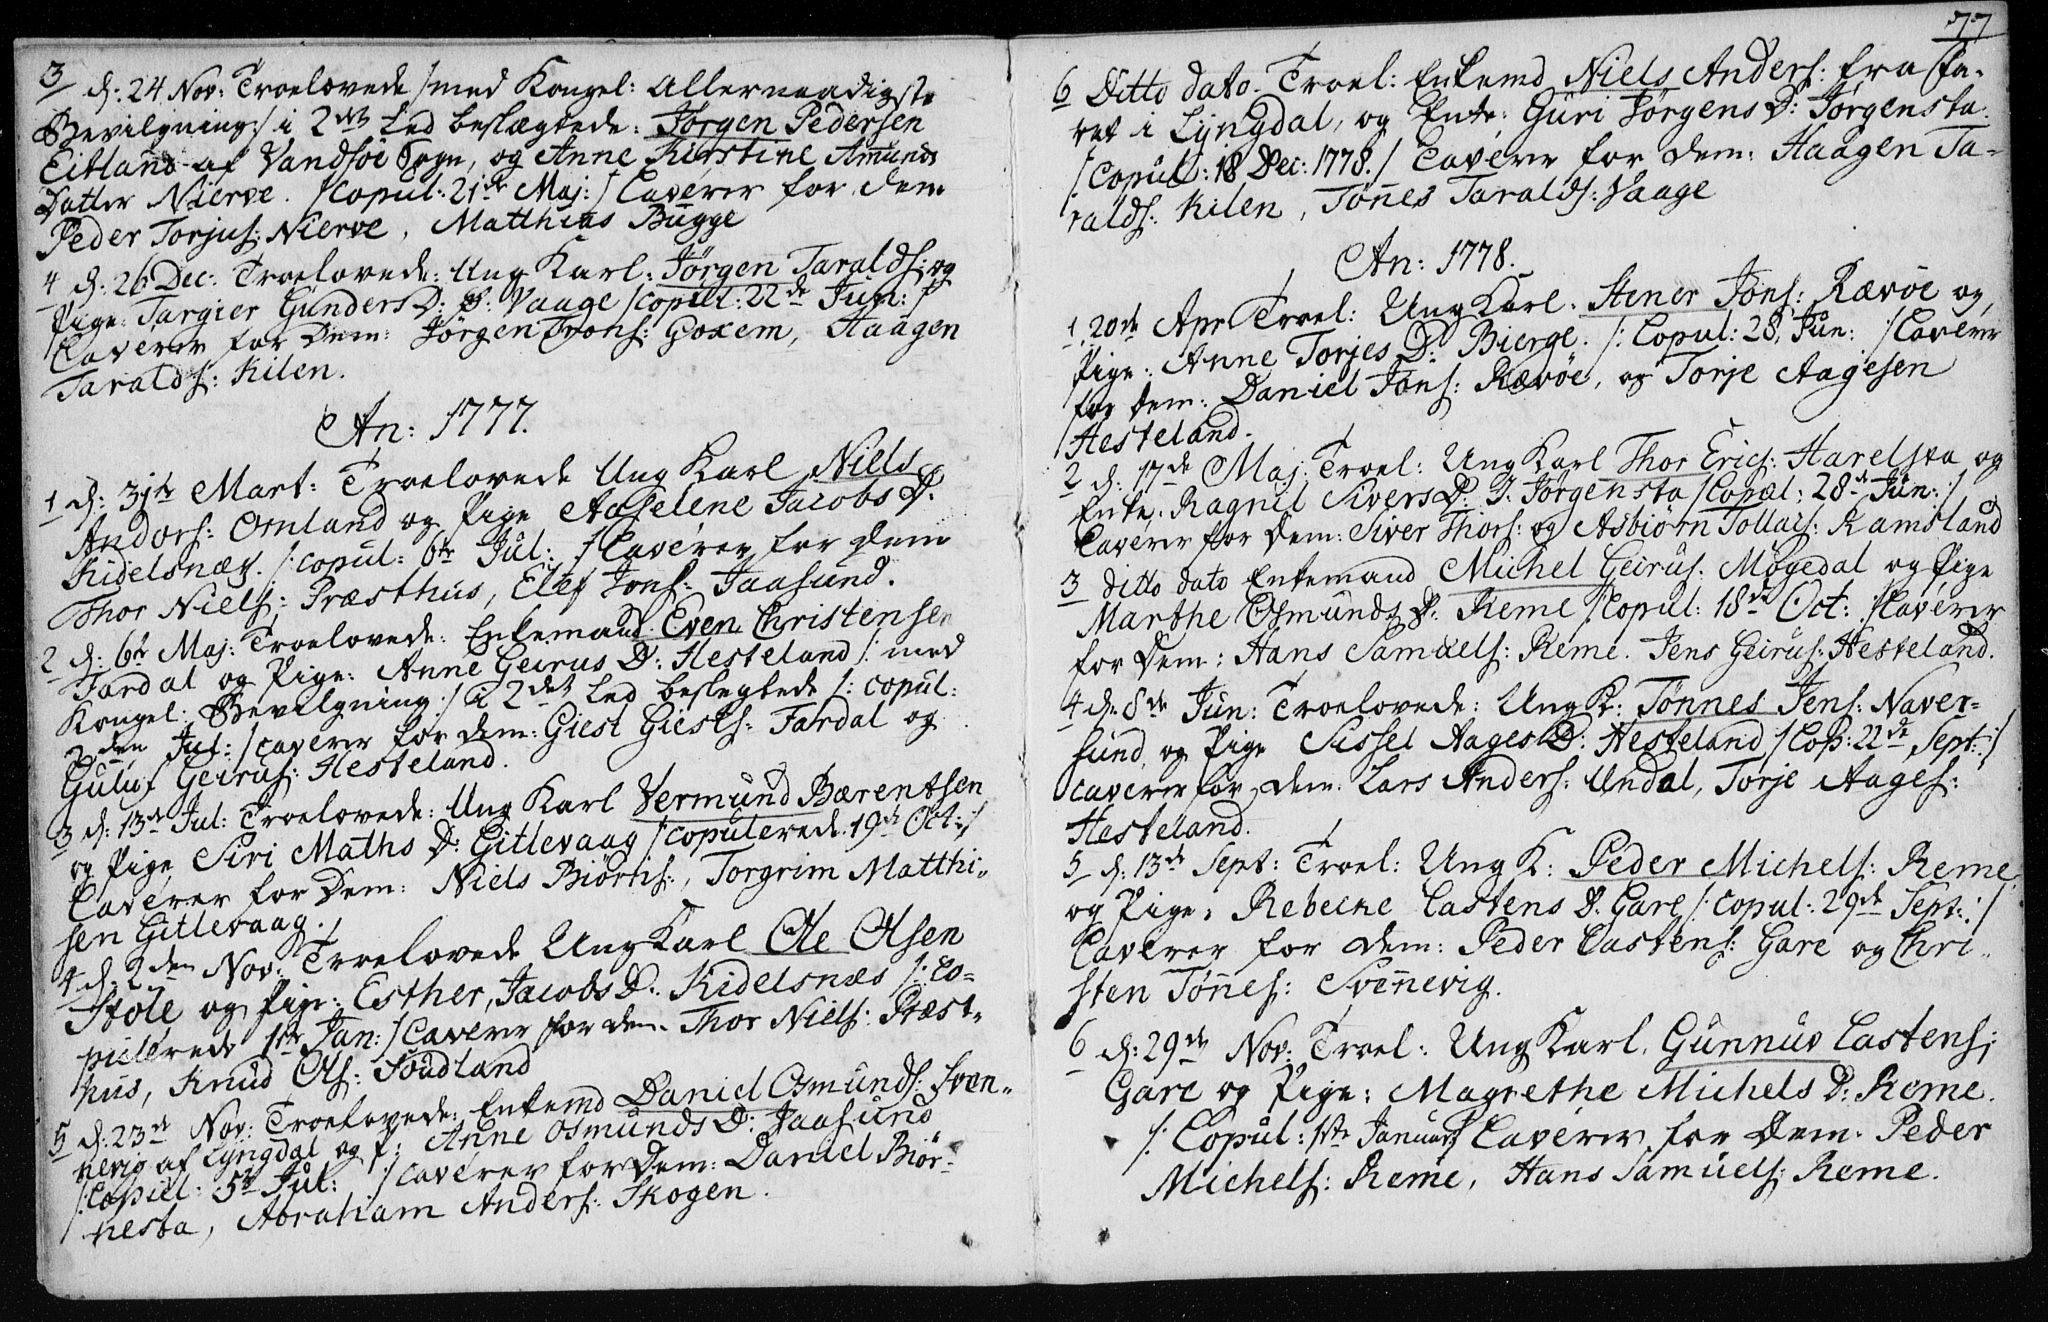 3 d: 24 Nov: Troelovede /: med Kongel: Allernaadigste
Bevilgning :/ i 2det Led beslægtede: Jørgen Pedersen
Eitland af Vandsøe Sogn, og Anne Kirstine Amunds
Datter Nierve. /: copul: 21de Maj: :/ Caverer for dem
Peder Torjus: Nierve, Matthias Bugge
4 d: 26 Dec: Troelovede: Ung Karl: Jørgen Taralds: og
Pige: Targier Gunders D: Vaage /: copul: 22de Jun: :/
Caverer for Dem: Jørgen Trons: Goxem, Haagen
Taralds: Kilen.
An: 1777.
1 d: 31te Mart: Troelovede Ung Karl Niels
Anders: Omland og Pige Aaselene Jacobs D:
Kidelsnæs. /: copul: 6te Jul: :/ Caverer for dem
Thor Niels: Præsthus, Elef Jons: Jaasund.
2 d: 6te Maj: Troelovede: Enkemand Even Christensen
Fardal og Pige: Anne Geirus D: Hesteland /: med
Kongel: Bevilgning :/ i 2det Led beslegtede /: copul:
2den Jul: :/ caverer for dem: Giest Giests: Fardal og
Guluf Geirus: Hesteland.
3 d: 13de Jul: Troelovede: Ung Karl Vermund Bærentsen
og Pige Siri Maths D: Gitlevaag /: copulerede 19de Oct: :/
Caverer for Dem: Niels Biørns:, Torgrim Matthi-
sen Gitlevaag.
4 d: 2den Nov: Troelovede Ung Karl Ole Olsen
Stole og Pige: Esther Jacobs D: Kidelsnæs /: co-
pulerede 1ste Jan: :/ Caverer for dem. Thor Niels: Præst-
hus, Knud Ols: Soudland
5 d: 23de Nov: Troelovede: Enkemd Daniel Osmunds: Sven-
nevig af Lyngdal og P: Anne Osmunds D: Jaasund
/: Copul: 5te Jul: :/ caverer for Dem: Daniel Biør-
nesta, Abraham Anders: Skogen.
77
6 Ditto dato. Troel: Enkemd Niels Anders: fra Fa-
ret i Lyngdal, og Enke: Guri Jørgens D: Jørgensta.
/: Copul: 18 Dec: 1778. :/ Caverer for dem: Haagen Ta-
ralds: Kilen, Tønnes Taralds: Vaage
An: 1778.
1, 20de Apr Troel: Ung Karl: Stener Jons: Rævøe og
Pige: Anne Torjes D: Bierge. /: Copul: 28, Jun: :/ Caverer
for dem: Daniel Jons: Rævøe, og Torje Aagesen
Hesteland.
2 d: 17de Maj. Troel: Ung Karl Thor Erics: Harelsta og
Enke: Ragnil Sivers D: J. Jørgensta /: Copul: 28de Jun: :/
Caverer for Dem: Siver Thors: og Asbiørn Tollacs: Ramsland
3 ditto dato Enkemand Michel Geirus: Møgedal og Pige
Marthe Osmunds D: Reme /: Copul: 18de Oct: :/ Caverer
for Dem: Hans Samuels: Reme. Jens Geirus: Hesteland.
4 d. 8de Jun: Troelovede: Ung K: Tønnes Jens: Naver-
sund, og Pige Sissel Aages D: Hesteland /: Cop: 22de Sept: :/
caverer for dem: Lars Anders: Undal, Torje Aages:
Hesteland.
5 d. 13de Sept: Troel: Ung K: Peder Michels: Reme
og Pige: Rebecke Castens D. Gare /: copul: 29de Sept: :/
Caverer for dem: Peder Castens: Gare og Chri-
sten Tønnes: Svennevig.
6 d: 29de Nov: Troel: Ung Karl. Gunnuv Castens:
Gare og Pige: Magrethe Michels D: Reme.
/: Copul: 1ste Januar :/ Caverer for Dem. Peder
Michels: Reme, Hans Samuels: Reme.